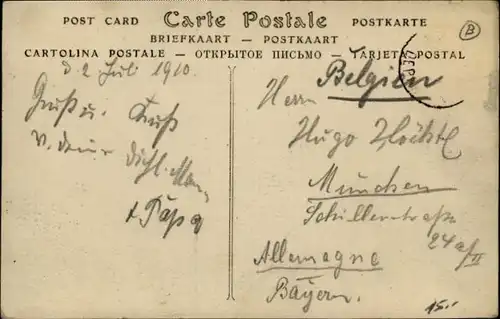 POST CARD Carte Postale POSTKARTE
BRIEFKAART — POSTKAART
CARTOLINA POSTALE — ОТКРЫТОЕ ПИСЬМО — TARJETA POSTAL
B
d 2 Juli 1910.
Gruß u. Kuß
v. deine
+ Papa
Belgien
Herrn
Hugo
München
Schillerstraße
24 a/II
Allemagne
Bayern.
15.-